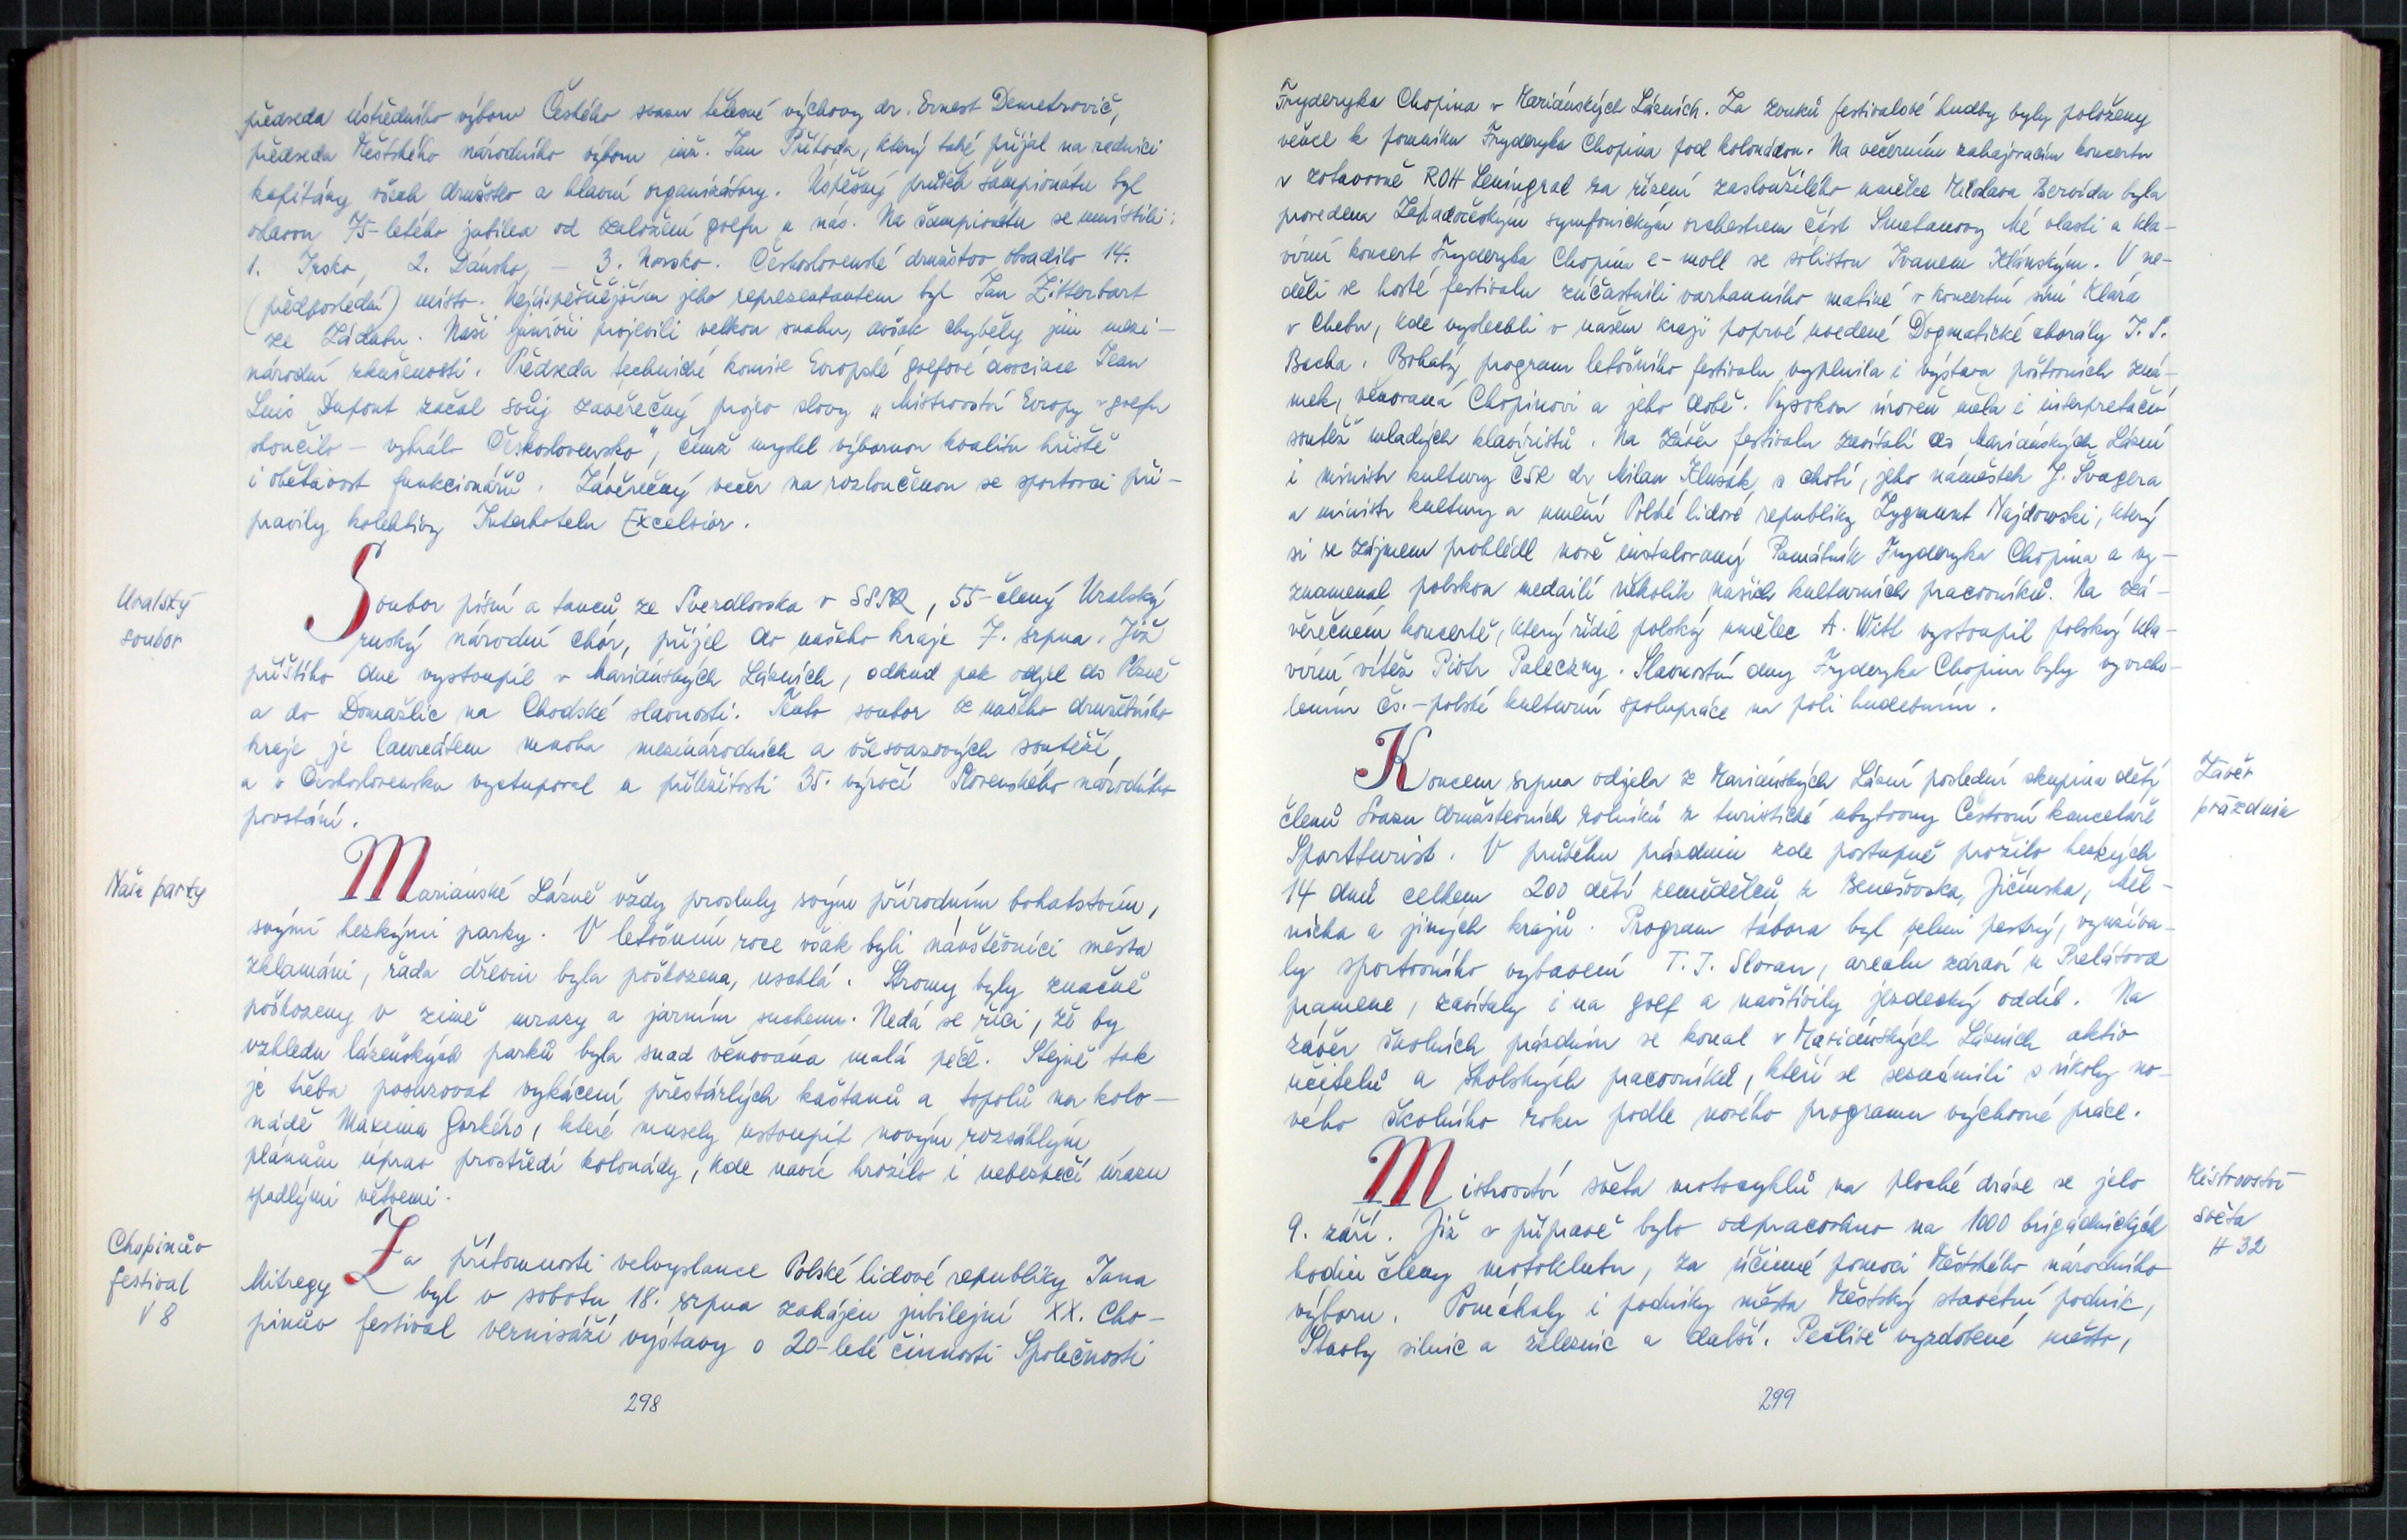 předseda ústředního výboru Českého svazu tělesné výchovy dr. Ernest Demetrovič,
předseda Městského národního výboru inž. Jan Příhoda, který také přijal na radnici
kapitány všech družstev a hlavní organizátory. Úspěšný průběh šampionátu byl
oslavou 75-letého jubilea od založení golfu u nás. Na šampionátu se umístili:
1. Irsko, 2. Dánsko, – 3. Norsko. Československé družstvo obsadilo 14.
(předposlední) místo. Nejúspěšnějším jeho reprezentantem byl Jan Zitterbart
ze Žďáru. Naši junioři projevili velkou snahu, avšak chyběly jim mezi-
národní zkušenosti. Předseda technické komise Evropské golfové asociace Jean
Luis Dupont začal svůj závěrečný projev slovy „Mistrovství Evropy v golfu
skončilo – vyhrálo Československo", čímž myslel výbornou kvalitu hřiště
i obětavost funkcionářů. Závěrečný večer na rozloučenou se sportovci při-
pravily kolektivy Interhotelu Excelsior.
Uralský
soubor
Soubor písní a tanců ze Sverdlovska v SSSR, 55-členný Uralský
ruský národní chór, přijel do našeho kraje 7. srpna. Již
příštího dne vystoupil v Mariánských Lázních, odkud pak odjel do Plzně
a do Domažlic na Chodské slavnosti. Tento soubor z našeho družebního
kraje je laureátem mnoha mezinárodních a všesvazových soutěží,
a v Československu vystupoval u příležitosti 35. výročí Slovenského národního
povstání.
Naše parky
Mariánské Lázně vždy prosluly svým přírodním bohatstvím,
svými hezkými parky. V letošním roce však byli návštěvníci města
zklamáni, řada dřevin byla poškozena, uschlá. Stromy byly značně
poškozeny v zimě mrazy a jarním suchem. Nedá se říci, že by
vzhledu lázeňských parků byla snad věnována malá péče. Stejně tak
je třeba posuzovat vykácení přestárlých kaštanů a topolů na kolo-
nádě Maxima Gorkého, které musely ustoupit novým rozsáhlým
plánům úprav prostředí kolonády, kde navíc hrozilo i nebezpečí úrazu
spadlými větvemi.
Chopinův
festival
V 8
Za přítomnosti velvyslance Polské lidové republiky Jana
Mitregy byl v sobotu 18. srpna zahájen jubilejní XX. Cho-
pinův festival vernisáží výstavy o 20-leté činnosti Společnosti
298
Fryderyka Chopina v Mariánských Lázních. Za zvuků festivalové hudby byly položeny
věnce k pomníku Fryderyka Chopina pod kolonádou. Na večerním zahajovacím koncertu
v zotavovně ROH Leningrad za řízení zasloužilého umělce Miloslava Bervída byla
provedena Západočeským symfonickým orchestrem část Smetanovy Mé vlasti a kla-
vírní koncert Fryderyka Chopina e-moll se sólistou Ivanem Klánským. V ne-
děli se hosté festivalu zúčastnili varhanního matiné v koncertní síni Klára
v Chebu, kde vyslechli v našem kraji poprvé uvedené Dogmatické chorály J. S.
Bacha. Bohatý program letošního festivalu vyplnila i výstava poštovních zná-
mek, věnovaná Chopinovi a jeho době. Vysokou úroveň měla i interpretační
soutěž mladých klavíristů. Na závěr festivalu zavítali do Mariánských Lázní
i ministr kultury ČSR dr Milan Klusák s chotí, jeho náměstek J. Švagera
a ministr kultury a umění Polské lidové republiky Zygmunt Najdowski, který
si se zájmem prohlédl nově instalovaný Památník Fryderyka Chopina a vy-
znamenal polskou medailí několik našich kulturních pracovníků. Na zá-
věrečném koncertě, který řídil polský umělec A. Witt vystoupil polský kla-
vírní vítěz Piotr Paleczny. Slavnostní dny Fryderyka Chopina byly vyvrcho-
lením čs.-polské kulturní spolupráce na poli hudebním.
Závěr
prázdnin
Koncem srpna odjela z Mariánských Lázní poslední skupina dětí
členů Svazu družstevních rolníků z turistické ubytovny Cestovní kanceláře
Sportturist. V průběhu prázdnin zde postupně prožilo hezkých
14 dnů celkem 200 dětí zemědělců z Benešovska, Jičínska, Měl-
nicka a jiných krajů. Program tábora byl velmi pestrý, využíva-
ly sportovního vybavení T. J. Slovan, areálu zdraví u Prelátova
pramene, zavítaly i na golf a navštívily jezdecký oddíl. Na
závěr školních prázdnin se konal v Mariánských Lázních aktiv
učitelů a školských pracovníků, kteří se seznámili s úkoly no-
vého školního roku podle nového programu výchovné práce.
Mistrovství
světa
H 32
Mistrovství světa motocyklů na ploché dráze se jelo
9. září. Již v přípravě bylo odpracováno na 1000 brigádnických
hodin členy motoklubu, za účinné pomoci Městského národního
výboru. Pomáhaly i podniky města Městský stavební podnik,
Stavby silnic a železnic a další. Pečlivě vyzdobené město,
299